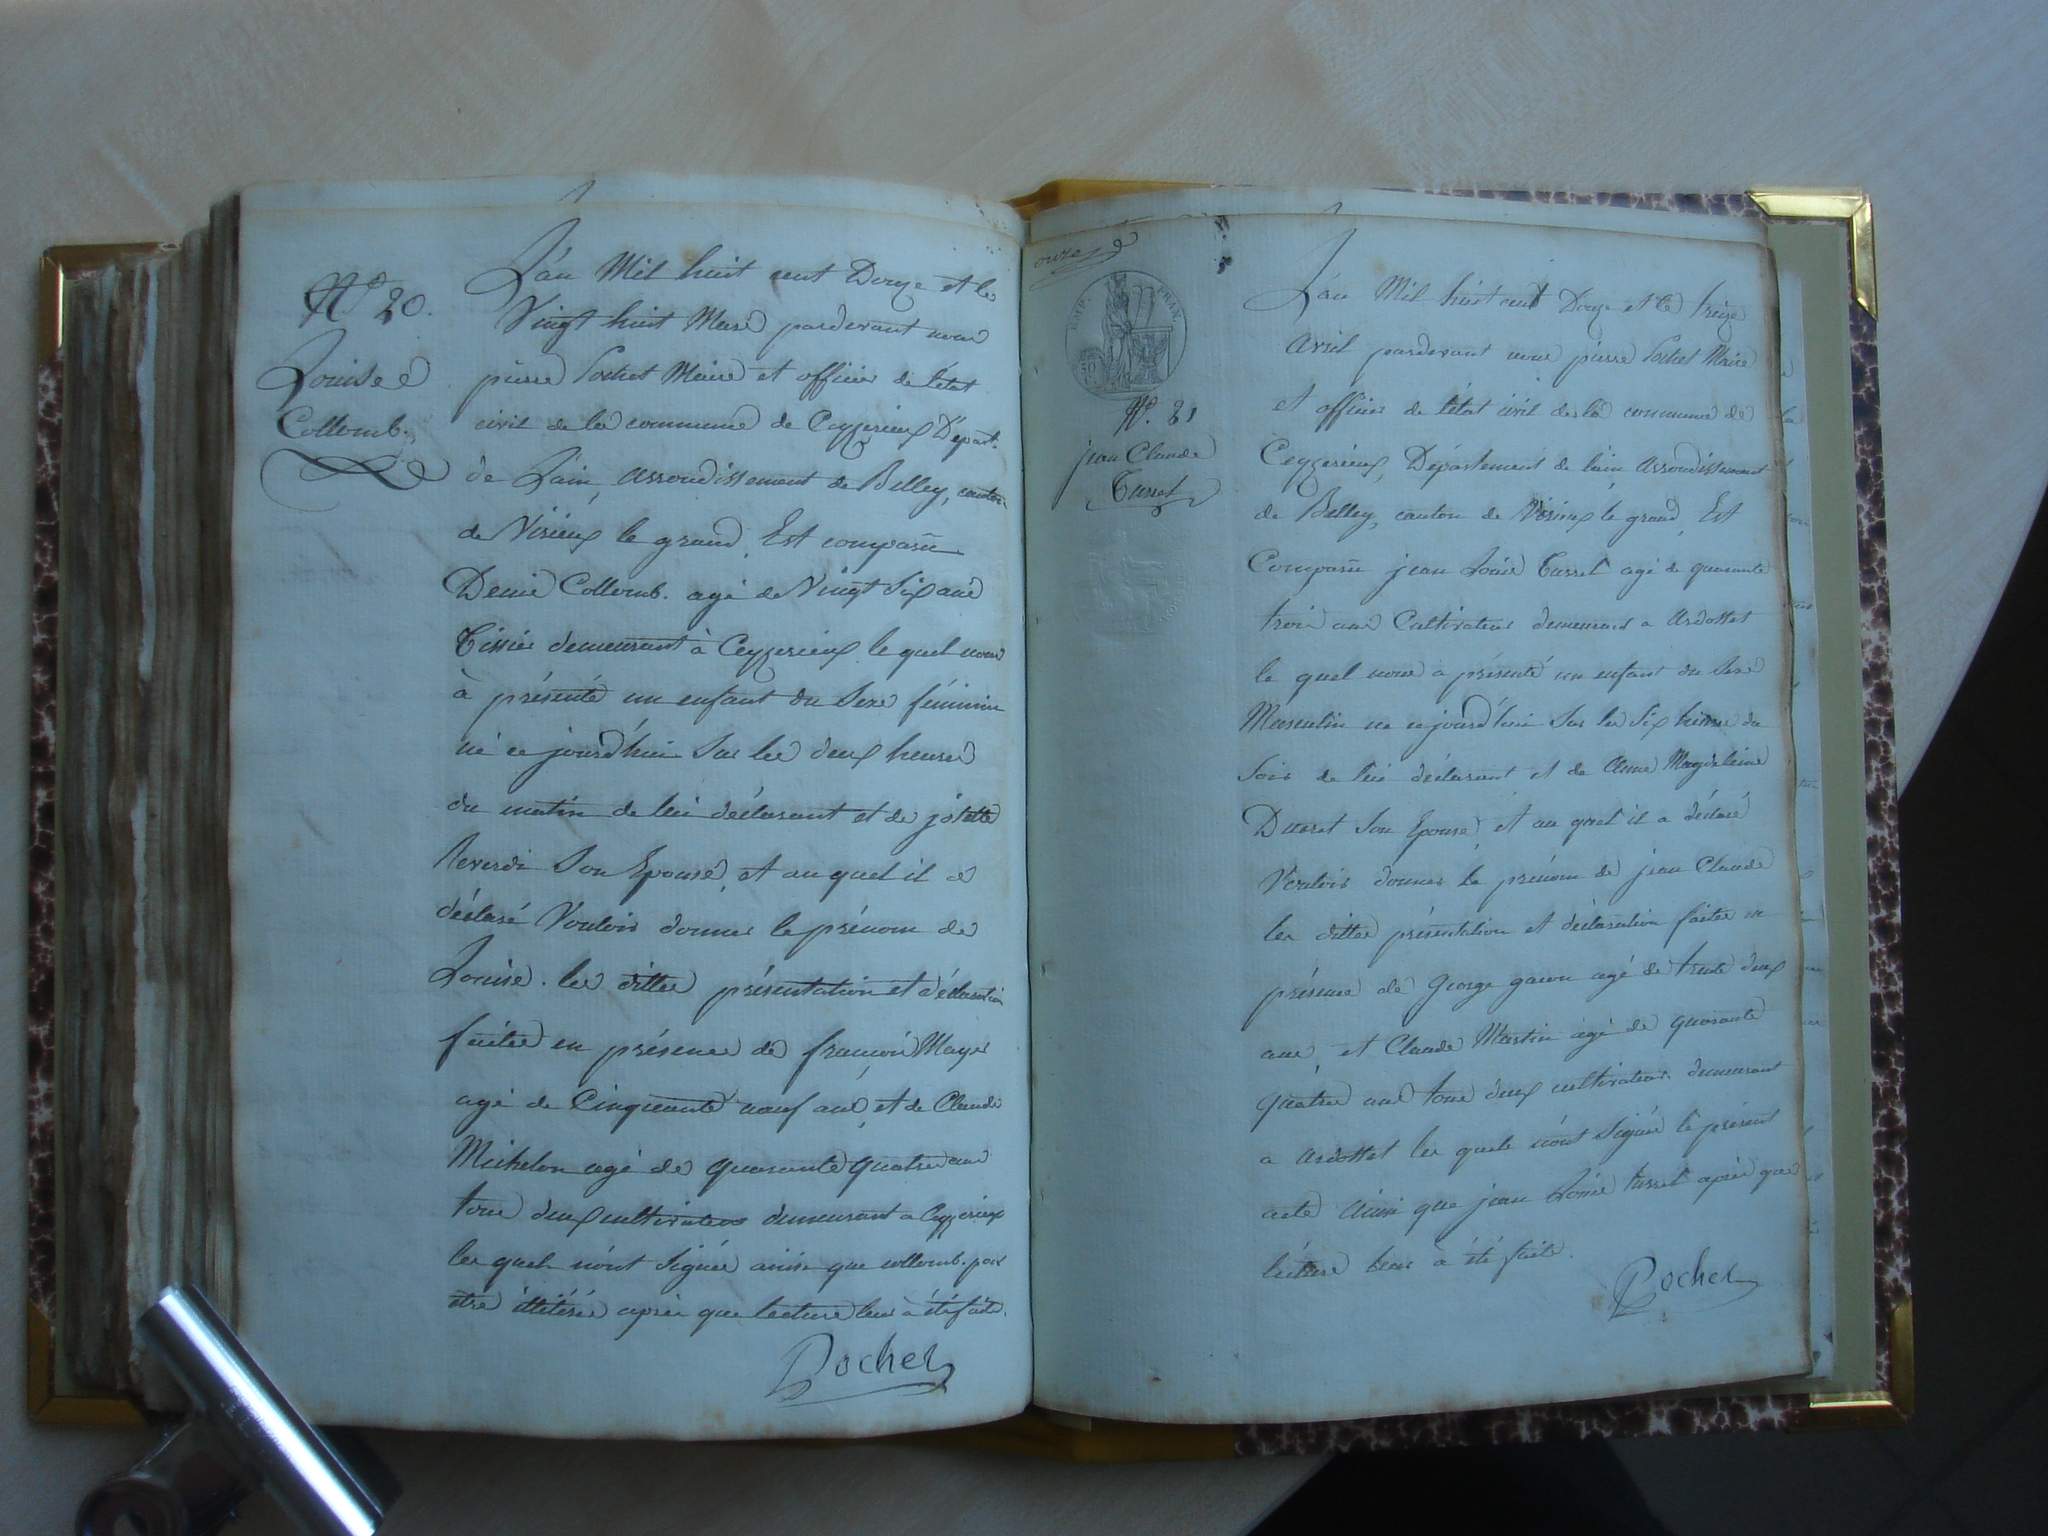 N.° 20.
Louise
Collomb.
L'an Mil huit cent Douze et le
Vingt huit Mars pardevant nous
pierre Pochet Maire et officier de létat
civil de la commune de Ceyzerieux Départ.
de Lain, arrondissement de Belley, canton
de Virieux le grand, Est comparu
Denis Collomb. agé de Vingt Six ans
Tissier demeurant à Ceyzerieux le quel nous
à présenté un enfant du Sexe féminin
né ce jourd'hui Sur les deux heures
du matin de lui déclarant et de josette
Reverdi Son Epouse, et au quel il a
déclaré Vouloir donner le prénom de
Louise. les dittes présentation et déclaration
faites en présence de françois Mayer
agé de Cinquante neuf ans, et de Claude
Michelon agé de quarante quatre ans
tous deux cultivateurs demeurant a Ceyzerieux
les quels n'ont Signés ainsi que collomb. pour
etre illitérés après que lecture leur à été faite.
Pochet
onze
EMP. FRAN.
50
N.° 21
jean Claude
Turret
L'an Mil huit cent Douze et le treize
avril pardevant nous pierre Pochet Maire
et officier de létat civil de la commune de
Ceyzerieux, Département de lain, arrondissement
de Belley, canton de Virieux le grand, Est
Comparu jean Louis Turret agé de quarante
trois ans Cultivateur demeurant a ardosset
le quel nous a présenté un enfant du Sexe
Masculin né ce jourd'hui Sur les Six heures du
Soir de lui déclarant et de Anne Magdeleine
Ducret Son Epouse, et au quel il a déclaré
Vouloir donner le prénom de jean Claude
les dittes présentation et déclaration faites en
présence de George agé de trente deux
ans, et Claude Martin agé de quarante
quatre ans tous deux cultivateurs demeurant
a ardosset les quels n'ont Signés le présent
acte ainsi que jean Louis turret après que
lecture leur à été faite.
Pochet